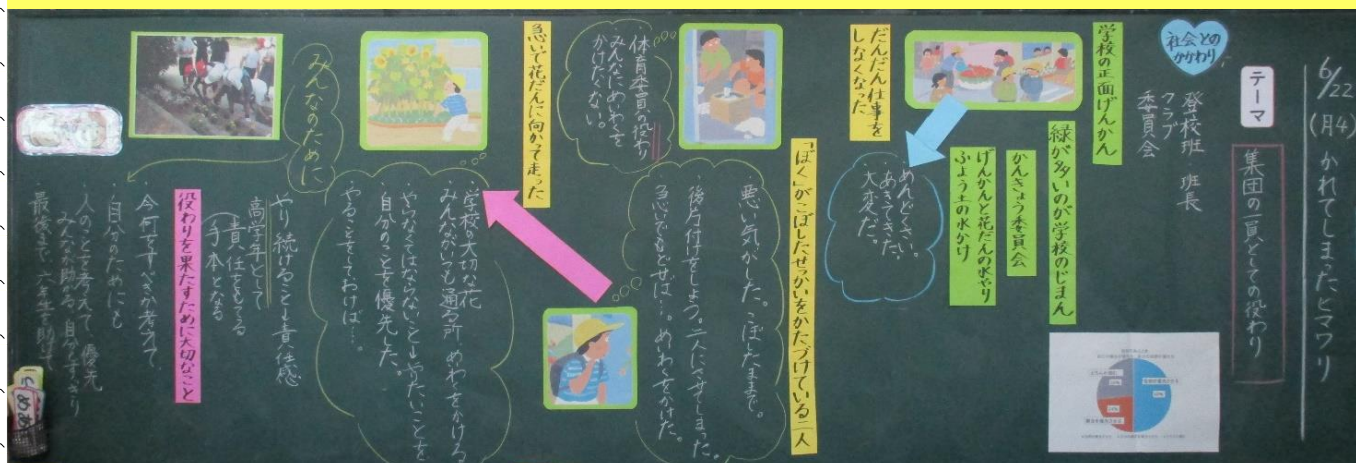 6/22
(月4) かれてしまったヒマワリ
テーマ
集団の一員としての役わり
社会との
かかわり
登校班 班長
クラブ
委員会
学校の正面げんかん
緑が多いのが学校のじまん
かんきょう委員会
げんかんと花だんの水やり
ふよう土の水かけ
だんだん仕事を
しなくなった
めんどくさい。
あきてきた。
大変だ。
「ぼく」がこぼしたせっかいをかたづけている二人
・悪い気がした。こぼしたままで。
・後片付をしよう。二人にさせてしまった。
急いでもどせば…。めいわくをかけた。
体育委員の役わり
みんなにめいわくを
かけたくない。
急いで花だんに向かって走った
・学校の大切な花
・みんながいつも通る所 めいわくをかける
・やらなくてはならないこと やりたいことを
・自分のことを優先した。
やることをしておけば…。
みんなのために
やり続けること 責任感
高学年として
責任をもてる
手本となる
役わりを果たすために大切なこと
・今何をすべきか考えて
・自分のためにも
・人のことを考えて、優先
みんな助かる。自分もすっきり
最後まで、六年生を助けて
めあ